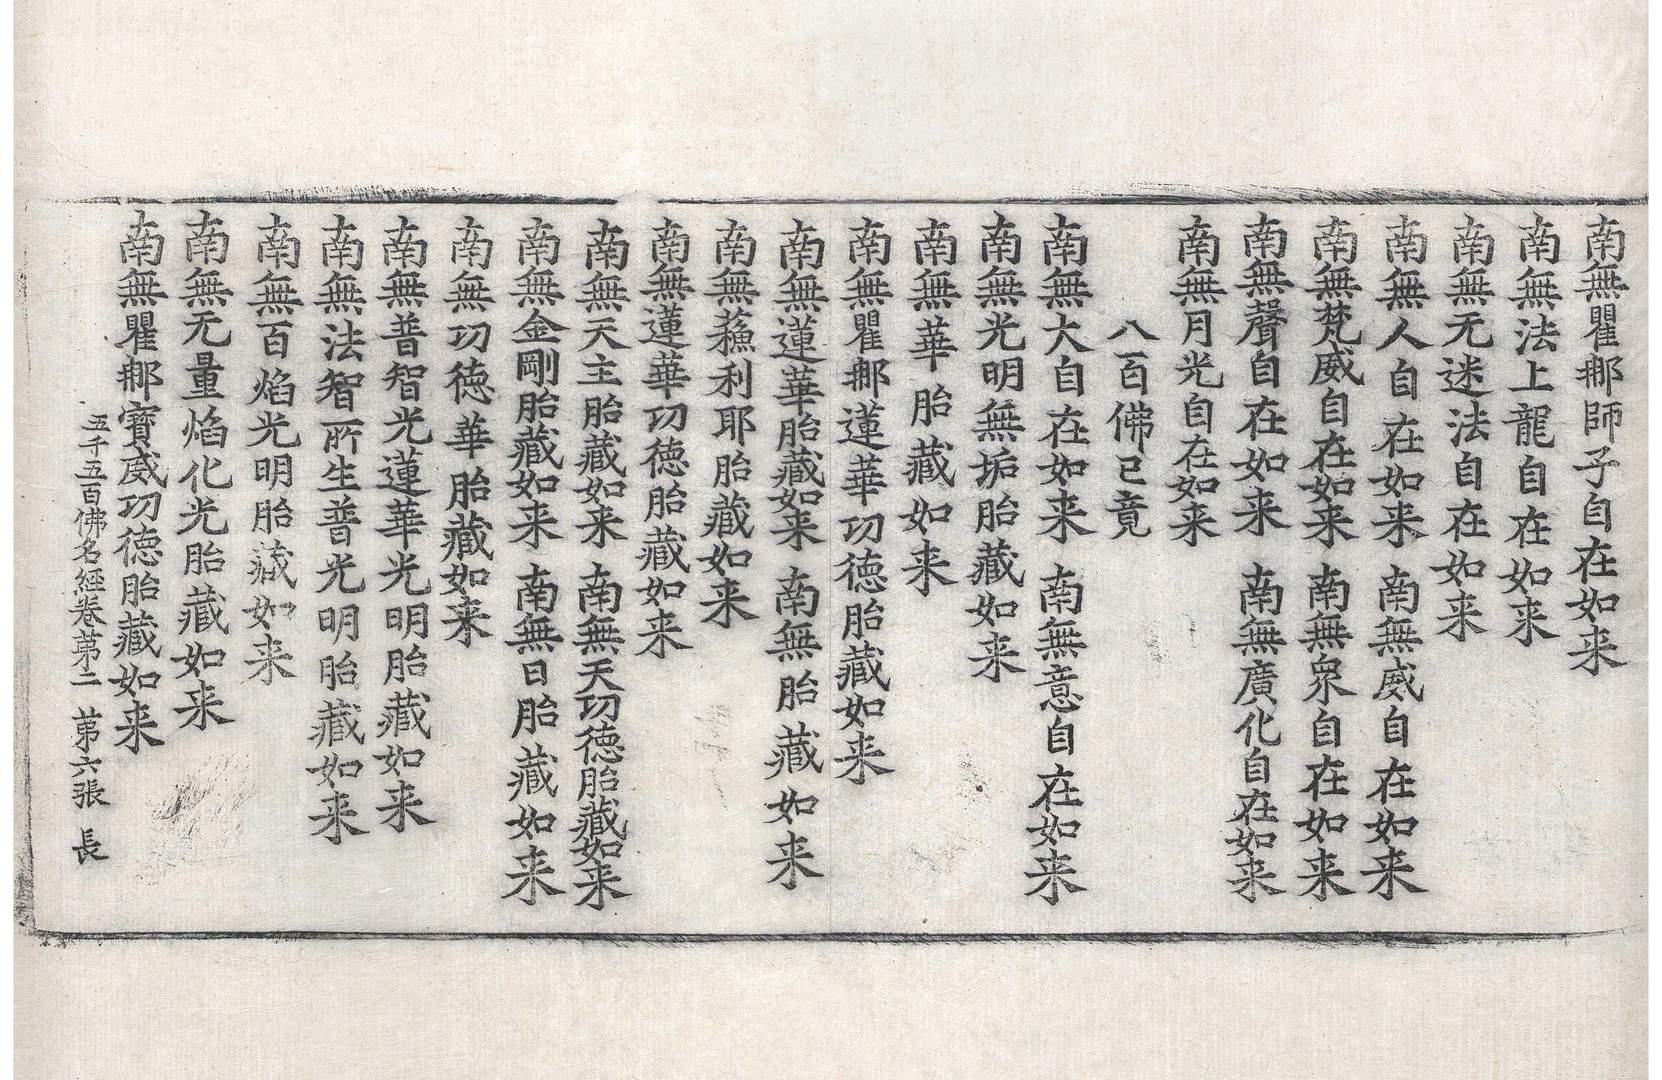 南無瞿㖠師子自在如来
南無法上龍自在如来
南無无迷法自在如来
南無人自在如来 南無威自在如来
南無梵威自在如来 南無衆自在如来
南無聲自在如来 南無廣化自在如来
南無月光自在如来
八百佛已竟
南無大自在如来 南無意自在如来
南無光明無垢胎藏如来
南無華胎藏如来
南無瞿㖠蓮華功德胎藏如来
南無蓮華胎藏如来 南無胎藏如来
南無蘓利耶胎藏如来
南無蓮華功德胎藏如来
南無天主胎藏如来 南無天功德胎藏如来
南無金剛胎藏如来 南無日胎藏如来
南無功德華胎藏如来
南無普智光蓮華光明胎藏如来
南無法智所生普光明胎藏如来
南無百焰光明胎藏如来
南無无量焰化光胎藏如来
南無瞿㖠寶威功德胎藏如来
五千五百佛名經卷第二 第六張 長